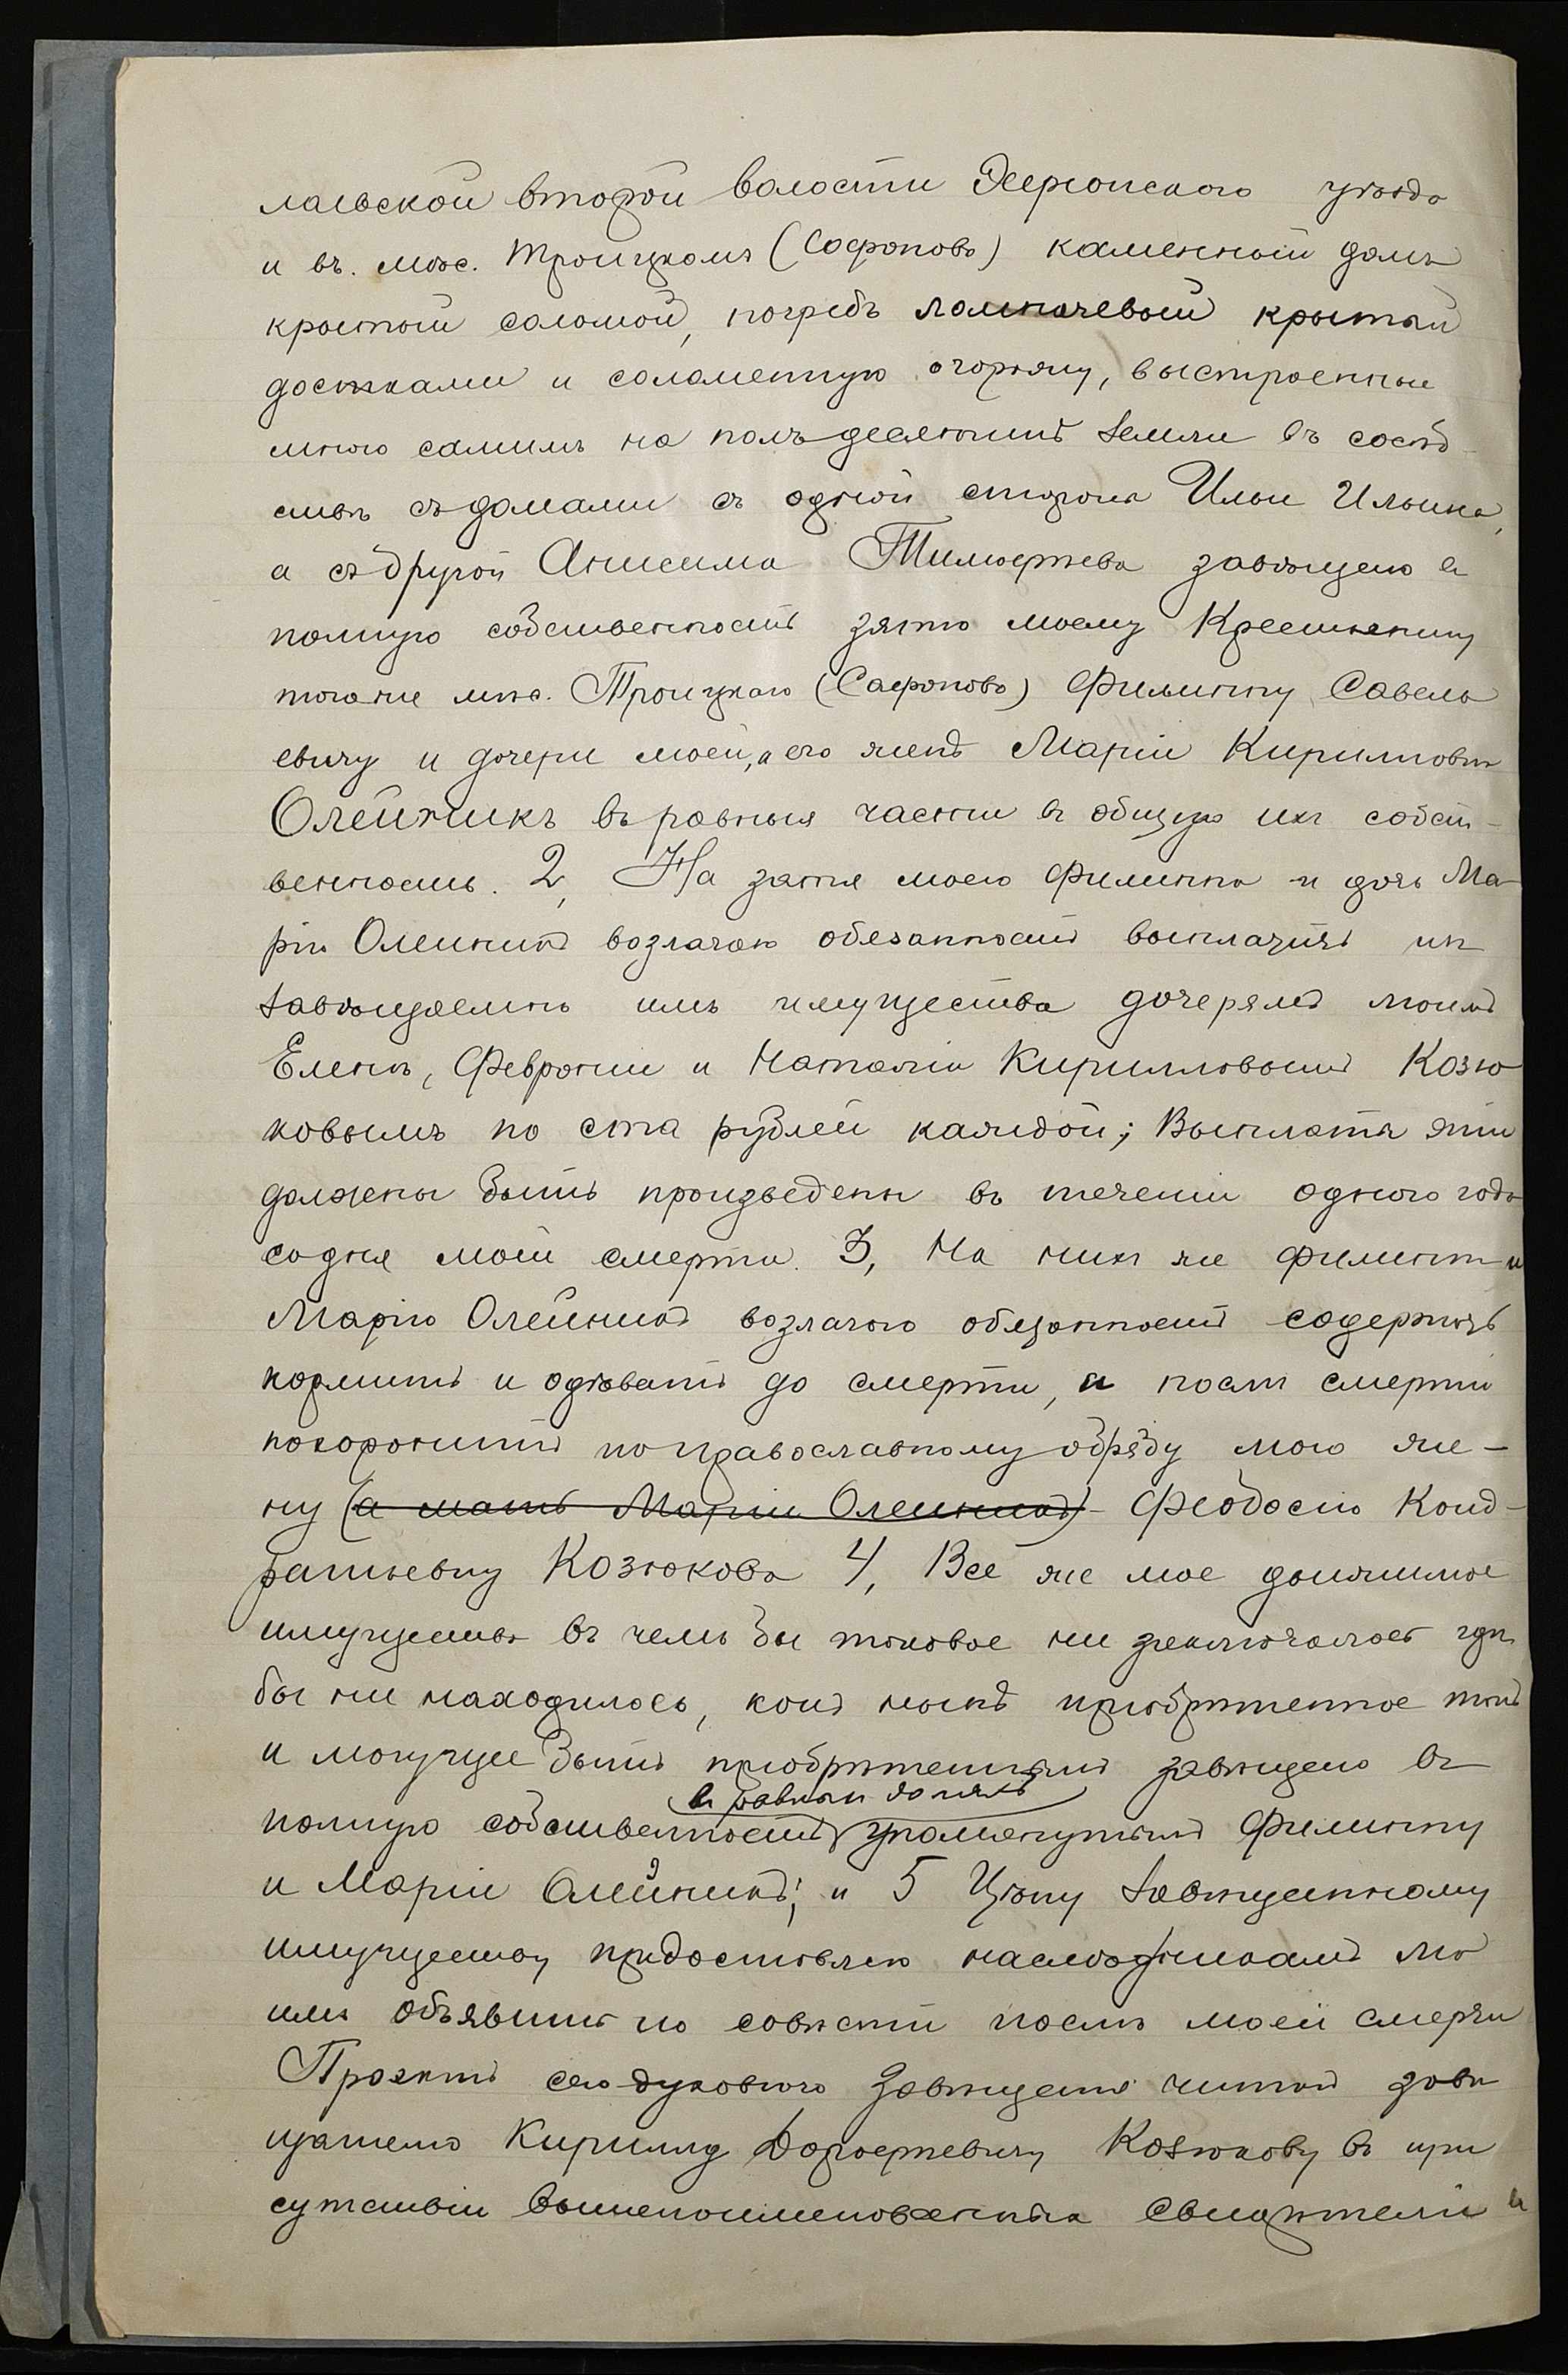 лаевской второй волости Херсонскаго уѣзда
и въ. мѣс. Троицкомъ (Сафоново) каменный домъ
крытый соломой, погребъ лампачевый крытый
досками и соломенную огорожу, выстроенные
мною самимъ на полъ десятинѣ земли въ сосѣд-
ствѣ съ домами съ одной стороны Ильи Ильина,
а съ другой Анисима Тимофеева завѣщаю въ
полную собственность зятю моему Крестьянину
того же мѣс. Троицкаго (Сафоново) Филиппу Савелье-
евичу и дочери моей, а его женѣ Маріи Кирилловнѣ
Олейникъ въ равныя части въ общую ихъ собст-
венность. 2, На зятя моего Филиппа и дочь Ма-
рію Олейникъ возлагаю обязанность выплатить изъ
завѣщаемаго имъ имущества дочерямъ моимъ
Еленѣ, Февроніи и Наталіи Кирилловымъ Козю-
ковымъ по ста рублей каждой; Выплаты эти
должны быть произведены въ теченіи одного года
со дня моей смерти. 3, На нихъ же Филиппа и
Марію Олейникъ возлагаю обязанность содержать
кормить и одѣвать до смерти, а послѣ смерти
похоронить по православному обряду мою же-
ну (а мать Маріи Олейникъ) Феодосію Конд-
ратьевну Козюкову 4, Все же мое движимое
имущество въ чемъ бы таковое ни заключалось гдѣ
бы ни находилось, какъ нынѣ пріобрѣтенное такъ
и могущее быть пріобрѣтеннымъ завѣщаю въ
въ равныхъ доляхъ
полную собственность упомянутымъ Филиппу
и Маріи Олейникъ; и 5 Цѣну завѣщанному
имуществу предоставляю наслѣдникамъ мо
имъ объявить по совѣсти послѣ моей смерти
Проэктъ сего духовного завѣщанія читанъ завѣ
щателю Кириллу Дорофеевичу Козюкову въ при
сутствіи вышепоименованныхъ свидѣтелей и